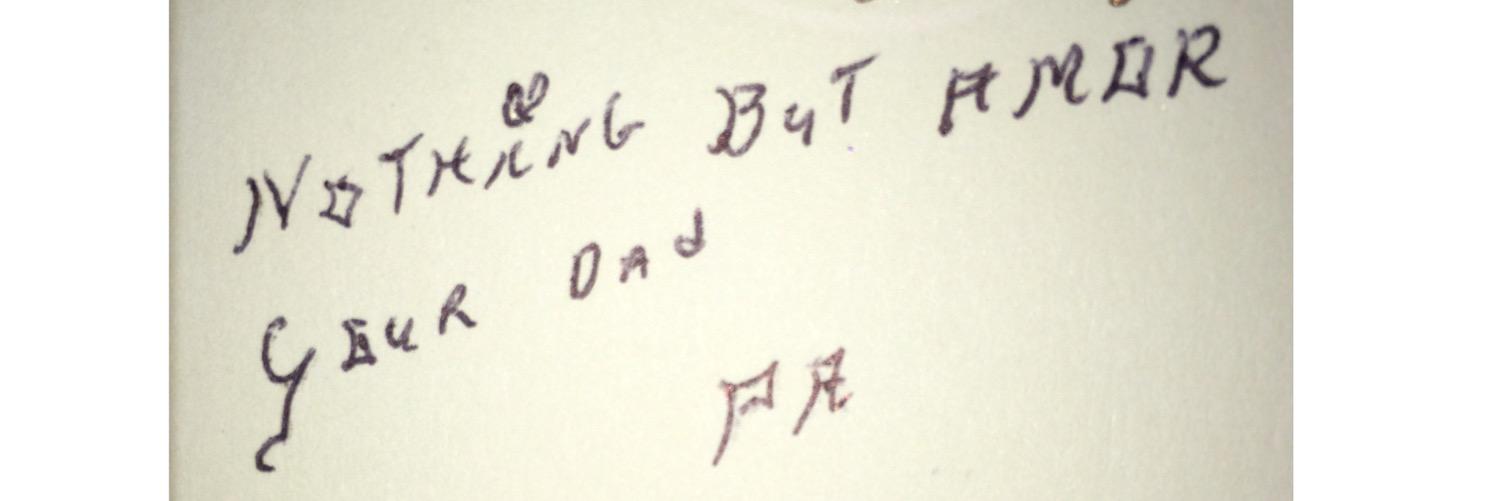 NOTHING BUT AMOR
YOUR DAd
PA